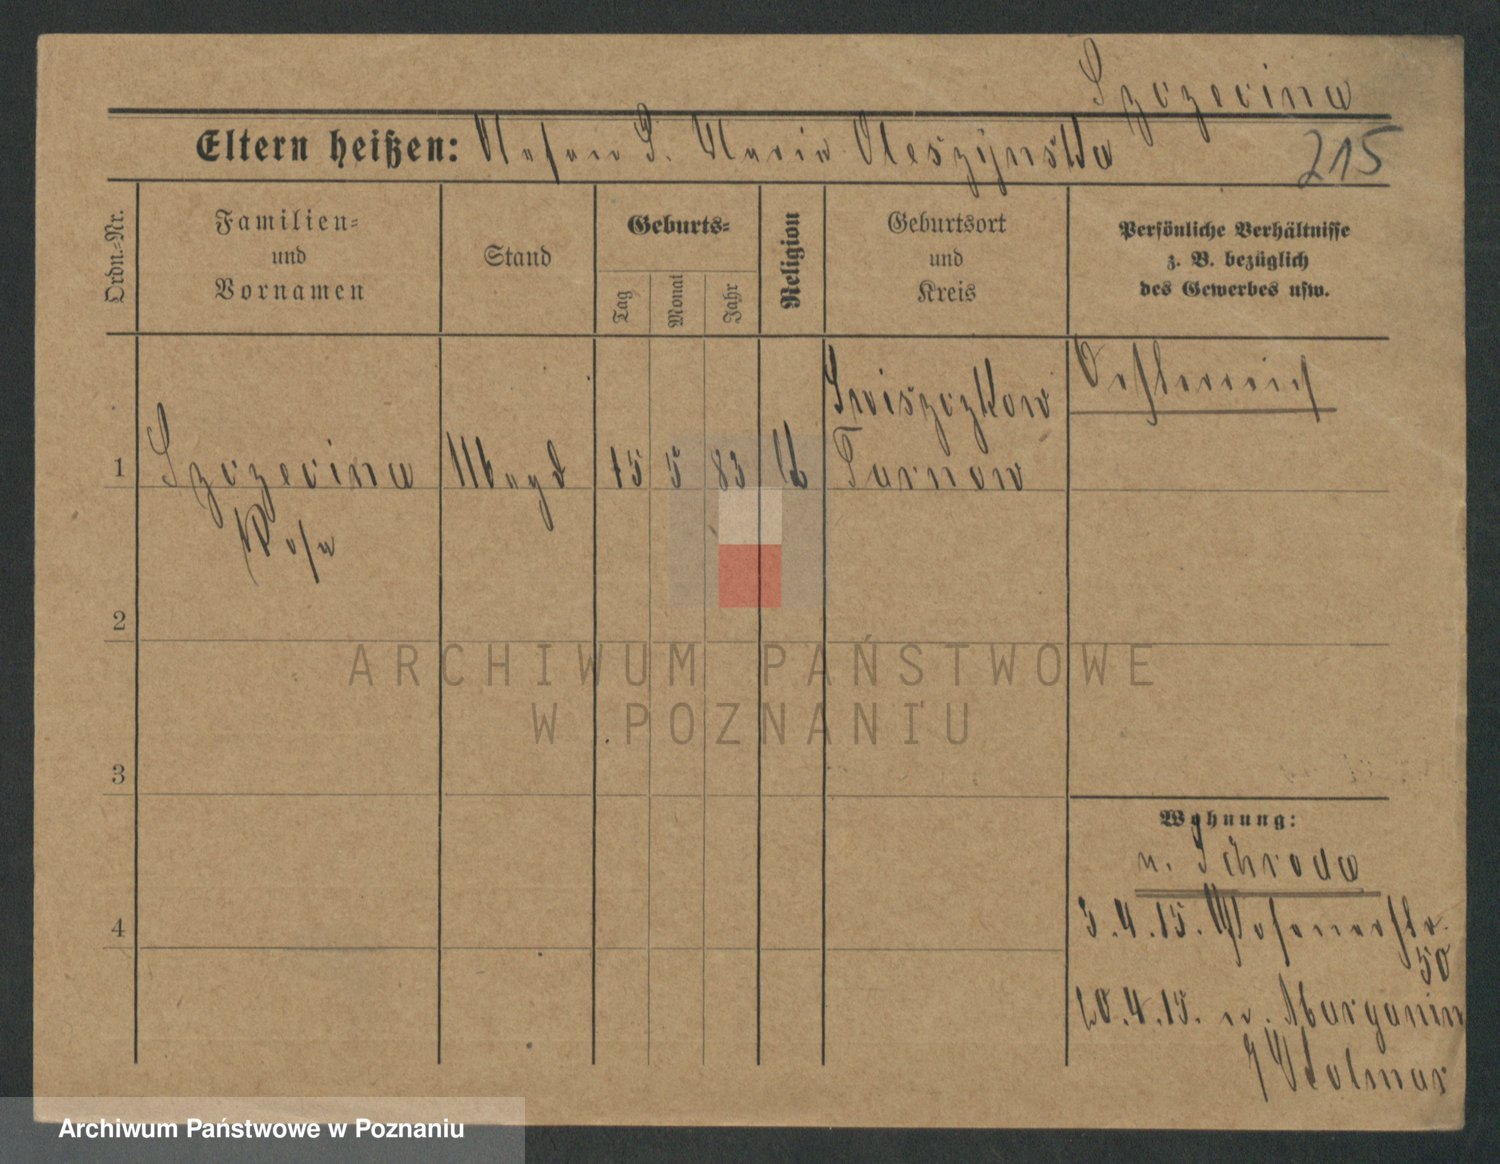 Szczecina
Eltern heißen: Josef u. S. Maria Oleszynska
215
Ordn.-Nr.
Familien-
und
Vornamen
Stand
Geburts-
Tag
Monat
Jahr
Religion
Geburtsort
und
Kreis
Persönliche Verhältnisse
z. B. bezüglich
des Gewerbes usw.
1
Szczecina
Rosa
Magd
15
5
83
k
Swiszczkow
Tarnow
Oesterreich
2
3
4
Wohnung:
n. Schroda
3.4.15. Posenerstr.
50
20.4.15. n. Margonin
Kolmar
ARCHIWUM PAŃSTWOWE
W POZNANIU
Archiwum Państwowe w Poznaniu